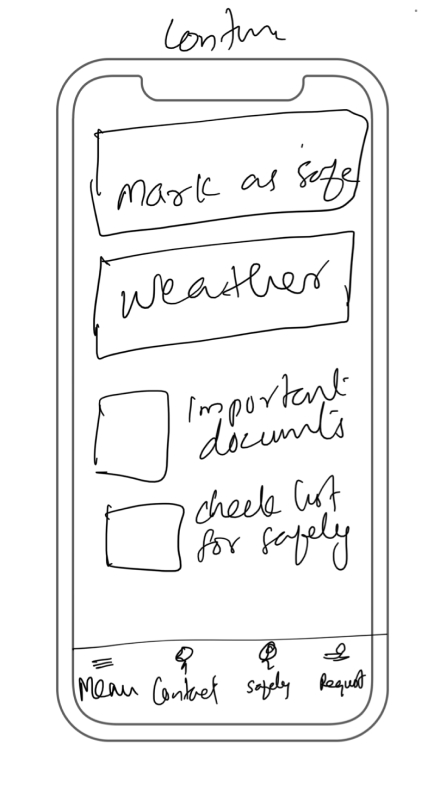 mark as safe
weather
important
documents
check list
for safety
Menu Contact safety Request